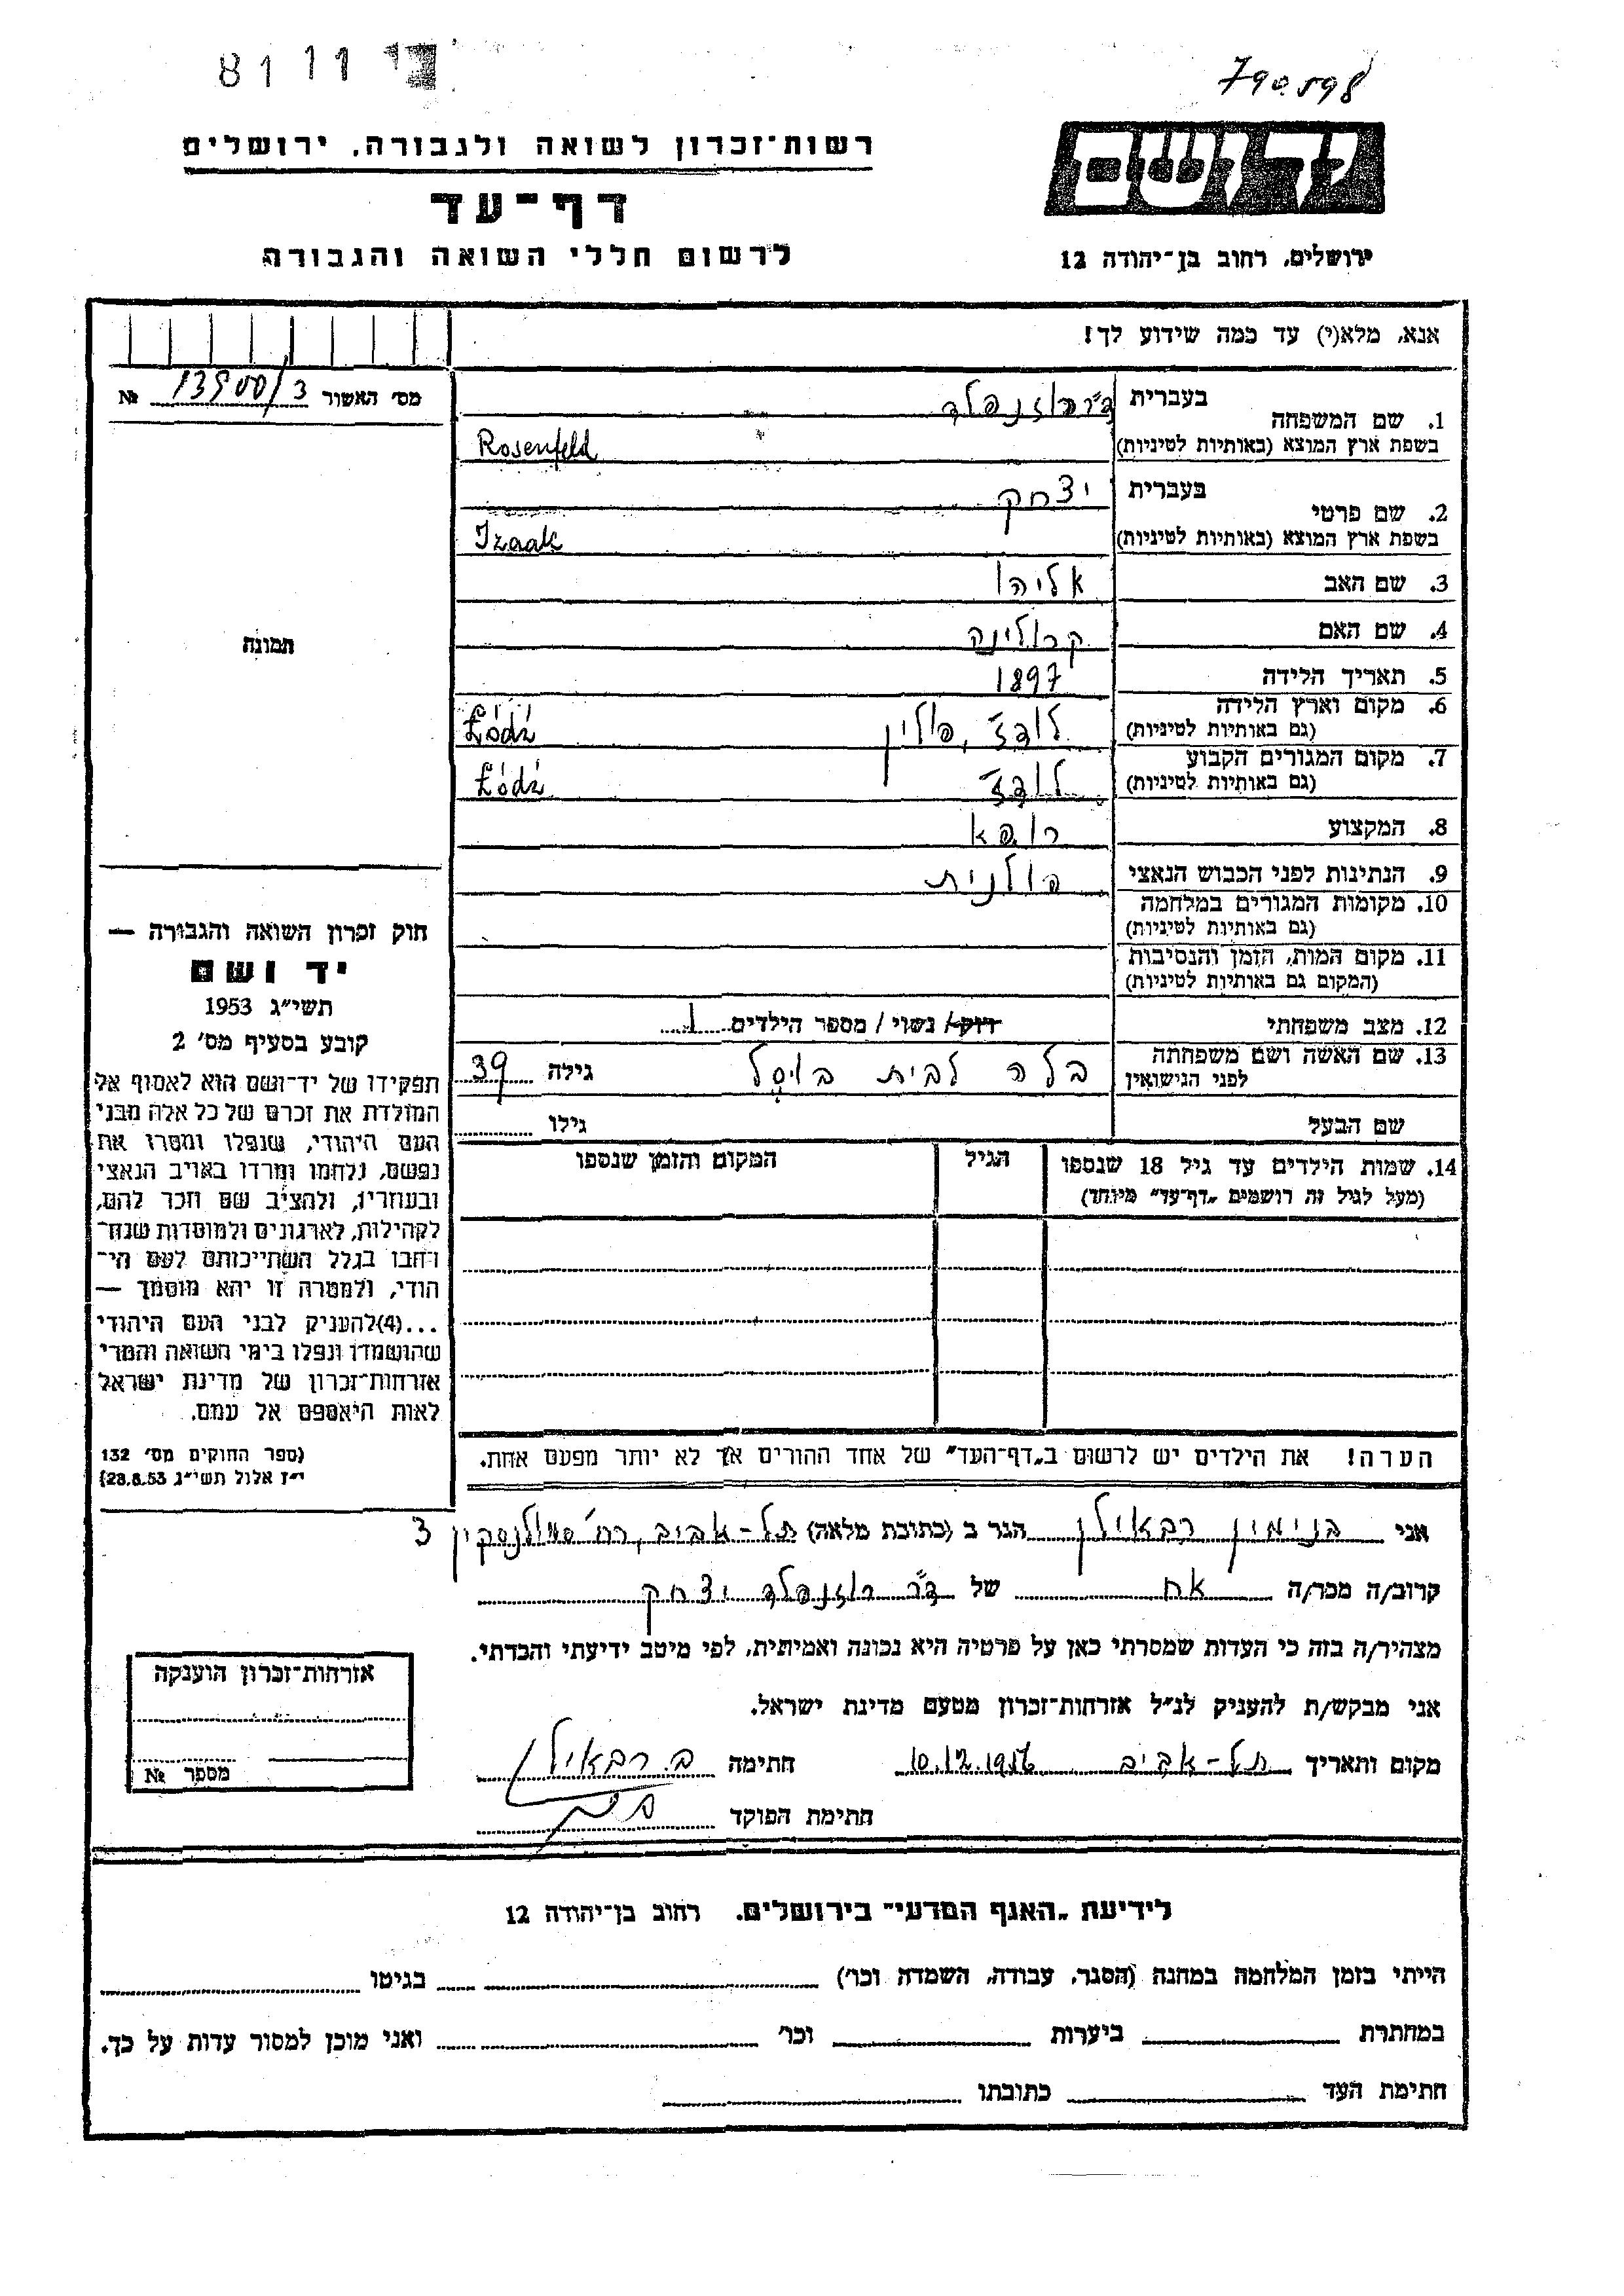 81 11
790598
רשות־זכרון לשואה ולגבורה, ירושלים
דף־עד
לרשום חללי השואה והגבורה
ידושם
ירושלים, רחוב בן־יהודה 12
אנא, מלא(י) עד כמה שידוע לך!
מס' האשור 13900/3 №
תמונה
1. שם המשפחה בעברית ד״ר רוזנפלד
בשפת ארץ המוצא (באותיות לטיניות) Rosenfeld
2. שם פרטי בעברית יצחק
בשפת ארץ המוצא (באותיות לטיניות) Izaak
3. שם האב אליהו
4. שם האם קרולינה
5. תאריך הלידה 1897
6. מקום וארץ הלידה (גם באותיות לטיניות) לודז', פולין Łódź
7. מקום המגורים הקבוע (גם באותיות לטיניות) לודז' Łódź
8. המקצוע רופא
9. הנתינות לפני הכבוש הנאצי פולנית
10. מקומות המגורים במלחמה (גם באותיות לטיניות)
11. מקום המות, הזמן והנסיבות (המקום גם באותיות לטיניות)
12. מצב משפחתי רווק/ נשוי / מספר הילדים 1
13. שם האשה ושם משפחתה לפני הנישואין בלה לבית גילה 39
שם הבעל גילו
14. שמות הילדים עד גיל 18 שנספו הגיל המקום והזמן שנספו
(מעל לגיל זה רושמים „דף־עד" מיוחד)
חוק זכרון השואה והגבורה —
יד ושם
תשי״ג 1953
קובע בסעיף מס' 2
תפקידו של יד־ושם הוא לאסוף אל
המולדת את זכרם של כל אלה מבני
העם היהודי, שנפלו ומסרו את
נפשם, נלחמו ומרדו באויב הנאצי
ובעוזריו, ולהציב שם וזכר להם,
לקהילות, לארגונים ולמוסדות שנח־
רחבו בגלל השתייכותם לעם הי־
הודי, ולמטרה זו יהא מוסמך —
...(4)להעניק לבני העם היהודי
שהושמדו ונפלו בימי השואה והמרי
אזרחות־זכרון של מדינת ישראל
לאות היאספם אל עמם.
(ספר החוקים מס' 132
י״ז אלול תשי״ג 28.8.53)
הערה! את הילדים יש לרשום ב„דף־העד" של אחד ההורים אך לא יותר מפעם אחת.
אני בנימין רבאילן הגר ב (כתובת מלאה) תל-אביב, רח' סמולנסקין 3
קרוב/ה מכר/ה אח של ד״ר רוזנפלד יצחק
מצהיר/ה בזה כי העדות שמסרתי כאן על פרטיה היא נכונה ואמיתית, לפי מיטב ידיעתי והכרתי.
אני מבקש/ת להעניק לנ״ל אזרחות־זכרון מטעם מדינת ישראל.
מקום ותאריך תל-אביב 10.12.1956 חתימה ב. רבאילן
חתימת הפוקד
אזרחות־זכרון הוענקה
מספר №
לידיעת „האגף המדעי" בירושלים, רחוב בן־יהודה 12
הייתי בזמן המלחמה במחנה (הסגר, עבודה, השמדה וכו') בגיטו
במחתרת ביערות וכו' ואני מוכן למסור עדות על כך.
חתימת העד כתובתו